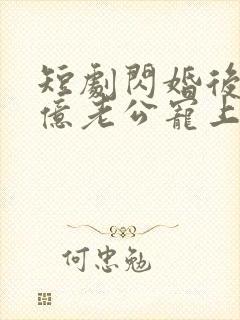 短劇閃婚後
億老公寵上
何忠勉